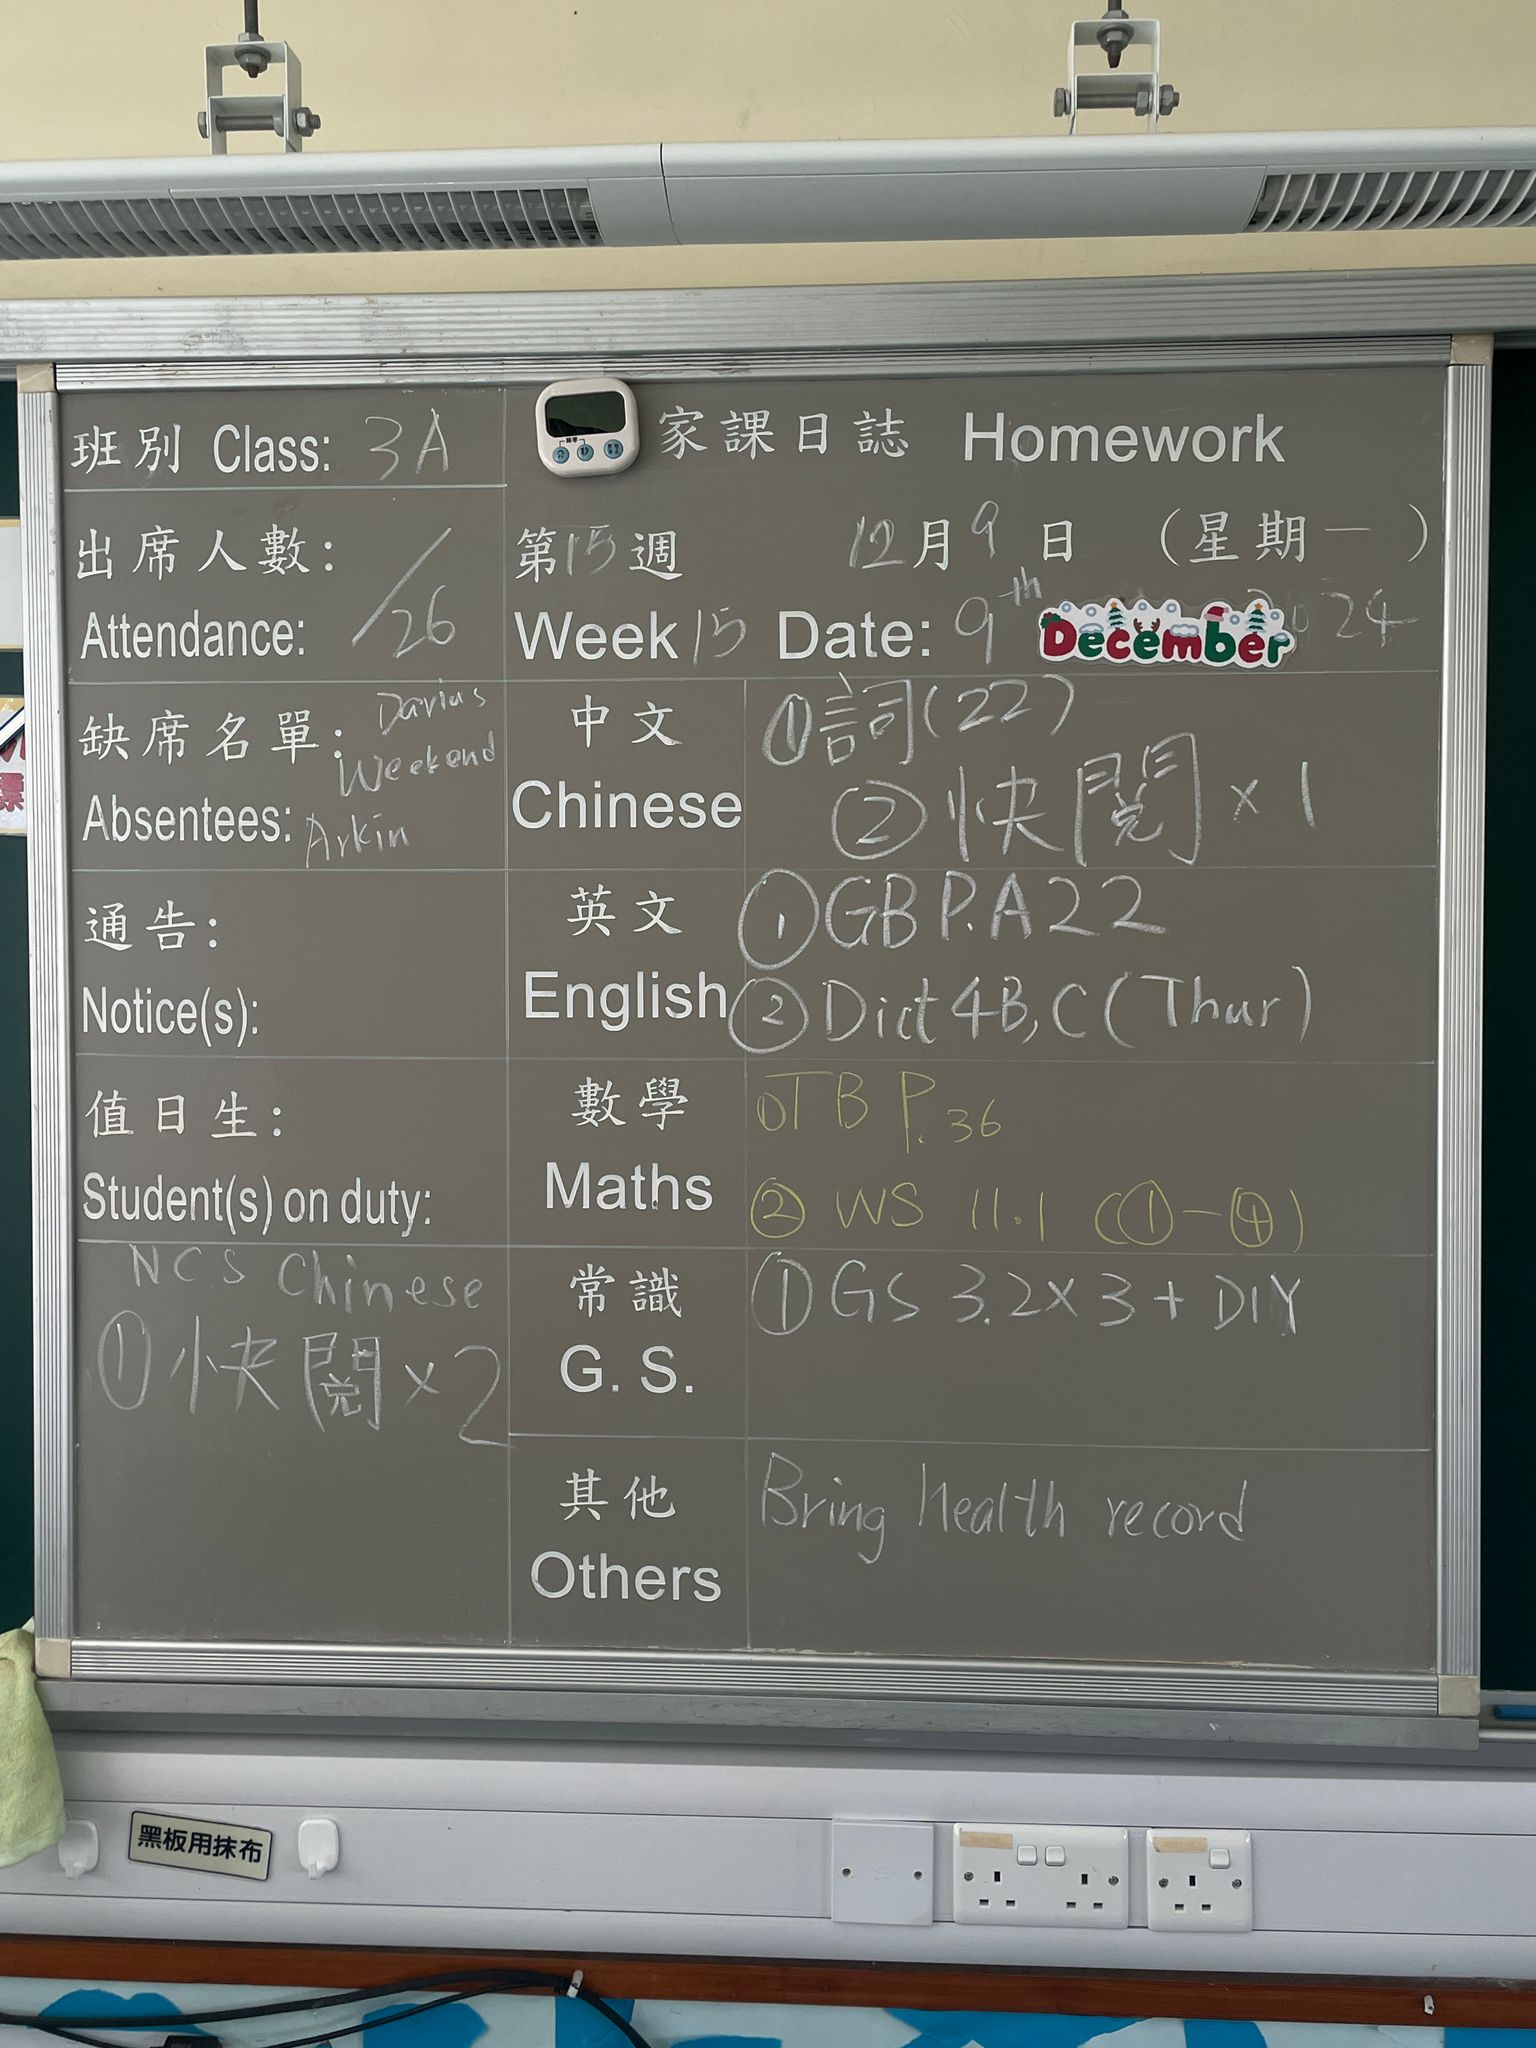 班別 Class: 3A
家課日誌 Homework
出席人數:
Attendance: /26
第15週 12月9日 (星期一)
Week 15 Date: 9th December 2024
缺席名單: Darius
Weekend
Absentees: Arkin
中文
Chinese
①詞(22)
②快閱×1
通告:
Notice(s):
英文
English
①GB P.A22
②Dict 4B,C (Thur)
值日生:
Student(s) on duty:
數學
Maths
①TB P.36
②WS 11.1 (①-④)
NCS Chinese
①快閱×2
常識
G. S.
①GS 3.2×3+DIY
其他
Others
Bring health record
黑板用抹布